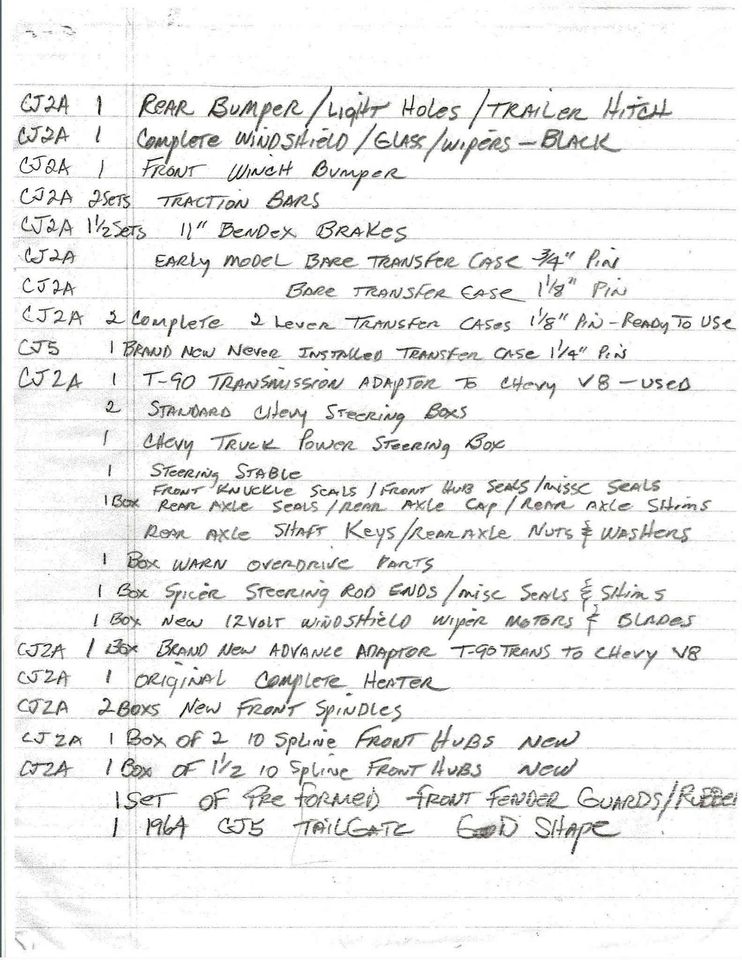 CJ2A 1 REAR BUMPER/LIGHT HOLES/TRAILER HITCH
CJ2A 1 COMPLETE WINDSHIELD/GLASS/WIPERS – BLACK
CJ2A 1 FRONT WINCH BUMPER
CJ2A 2 SETS TRACTION BARS
CJ2A 1 1/2 SETS 11" BENDEX BRAKES
CJ2A EARLY MODEL BARE TRANSFER CASE 3/4" PIN
CJ2A BARE TRANSFER CASE 1 1/8" PIN
CJ2A 2 COMPLETE 2 LEVER TRANSFER CASES 1 1/8" PIN – READY TO USE
CJ5 1 BRAND NEW NEVER INSTALLED TRANSFER CASE 1 1/4" PIN
CJ2A 1 T-90 TRANSMISSION ADAPTOR TO CHEVY V8 – USED
2 STANDARD CHEVY STEERING BOXS
1 CHEVY TRUCK POWER STEERING BOX
1 STEERING STABLE
FRONT KNUCKLE SEALS/FRONT HUB SEALS/MISSC SEALS
1 BOX REAR AXLE SEALS/REAR AXLE CAP/REAR AXLE SHIMS
REAR AXLE SHAFT KEYS/REAR AXLE NUTS & WASHERS
1 BOX WARN OVERDRIVE PARTS
1 BOX SPICER STEERING ROD ENDS/MISC SEALS & SHIMS
1 BOX NEW 12 VOLT WINDSHIELD WIPER MOTORS & BLADES
CJ2A 1 BOX BRAND NEW ADVANCE ADAPTOR T-90 TRANS TO CHEVY V8
CJ2A 1 ORIGINAL COMPLETE HEATER
CJ2A 2 BOXS NEW FRONT SPINDLES
CJ2A 1 BOX OF 2 10 SPLINE FRONT HUBS NEW
CJ2A 1 BOX OF 1 1/2 10 SPLINE FRONT HUBS NEW
1 SET OF PRE FORMED FRONT FENDER GUARDS/RUBBER
1 1964 CJ5 TAILGATE GOOD SHAPE